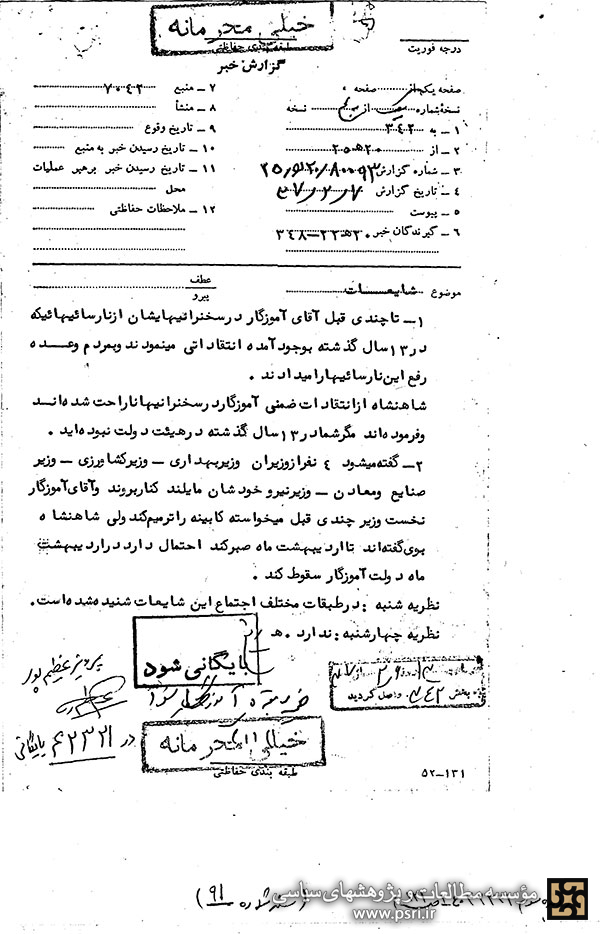 خیلی محرمانه
طبقه بندی حفاظتی
درجه فوریت
گزارش خبر
صفحه یکم از صفحه
۷ - منبع ۷۰۴۲
نسخه شماره از نسخه
۸ - منشأ
۱ - به ۳۴۲
۹ - تاریخ وقوع
۲ - از ۲۵ﻫ۲۰
۱۰ - تاریخ رسیدن خبر به منبع
۳ - شماره گزارش
۱۱ - تاریخ رسیدن خبر برهبر عملیات
۴ - تاریخ گزارش ۳۷/۲/۷
محل
۵ - پیوست
۱۲ - ملاحظات حفاظتی
۶ - گیرندگان خبر ۳۴۸-۲۲ﻫ۲۰
موضوع شایعات
عطف
پیرو
۱ - تاچندی قبل آقای آموزگار درسخنرانیهایشان ازنارسائیهائیکه
در۱۳سال گذشته بوجودآمده انتقاداتی مینمودند وبمردم وعده
رفع این نارسائیهارامیدادند .
شاهنشاه ازانتقادات ضمنی آموزگاردرسخنرانیهاناراحت شده‌اند
وفرموده‌اند مگرشمادر۱۳سال گذشته درهیئت دولت نبوده‌اید .
۲ - گفته میشود ٤ نفرازوزیران وزیربهداری - وزیرکشاورزی - وزیر
صنایع ومعادن - وزیرنیرو خودشان مایلند کناربروند وآقای‌آموزگار
نخست وزیر چندی قبل میخواسته کابینه راترمیم‌کند ولی شاهنشاه
بوی‌گفته‌اند تااردیبهشت ماه صبرکند احتمال دارد دراردیبهشت
ماه دولت آموزگار سقوط کند .
نظریه شنبه : درطبقات مختلف اجتماع این شایعات شنیده‌شده‌است.
نظریه چهارشنبه : ندارد . ﻫ
بایگانی شود
پرویز عظیم پور
بخش ۳۴۲ واصل گردید
در ۶۲۳۳۱ بایگانی
خیلی محرمانه
طبقه بندی حفاظتی
۵۲-۱۳۱
مؤسسه مطالعات و پژوهشهای سیاسی
www.psri.ir
(سند شماره ۹۱)